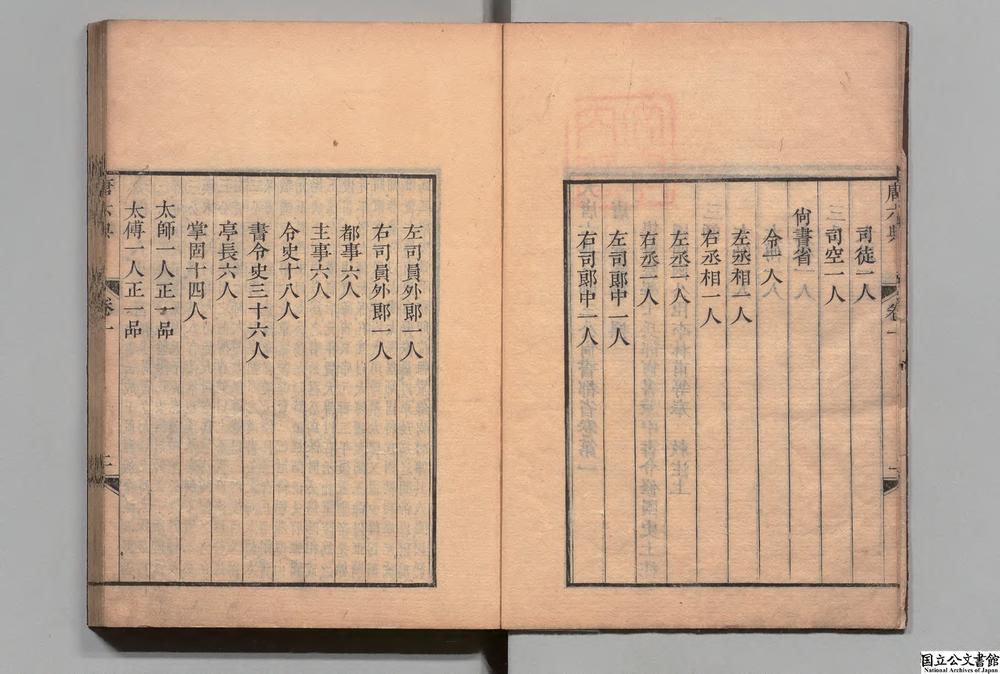 唐六典 卷一 二
司徒一人
司空一人
尙書省
令一人
左丞相一人
右丞相一人
左丞一人
右丞一人
左司郞中一人
右司郞中一人
左司員外郞一人
右司員外郞一人
都事六人
主事六人
令史十八人
書令史三十六人
亭長六人
掌固十四人
太師一人正一品
太傅一人正一品
唐六典 卷一 三
国立公文書館
National Archives of Japan